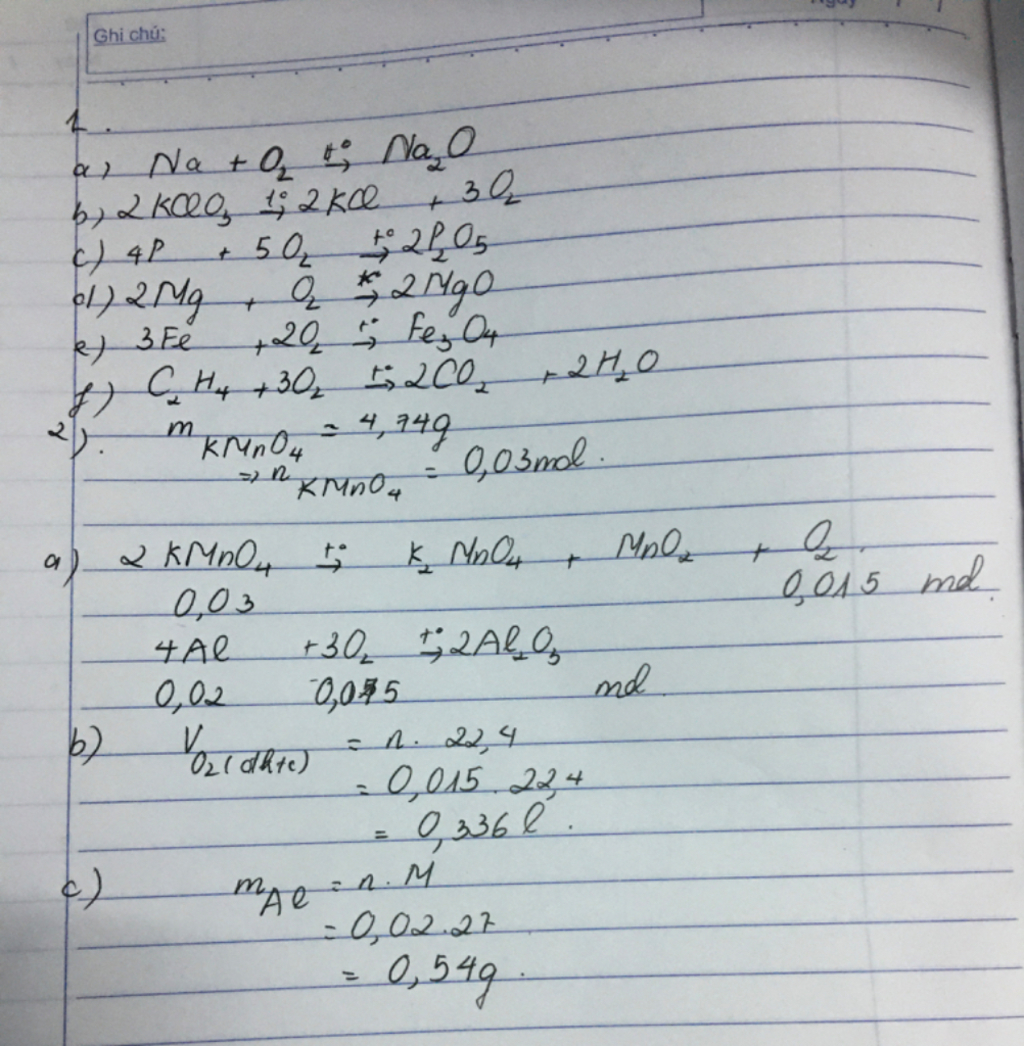 Ghi chú:
1.
a) Na + O₂ t°→ Na₂O
b) 2KClO₃ t°→ 2KCl + 3O₂
c) 4P + 5O₂ t°→ 2P₂O₅
d) 2Mg + O₂ t°→ 2MgO
e) 3Fe + 2O₂ t°→ Fe₃O₄
f) C₂H₄ + 3O₂ t°→ 2CO₂ + 2H₂O
2). m KMnO₄ = 4,74g
=> n KMnO₄ = 0,03mol.
a) 2 KMnO₄ t°→ K₂MnO₄ + MnO₂ + O₂.
0,03 0,015 mol.
4Al + 3O₂ t°→ 2Al₂O₃
0,02 0,015 mol
b) V O₂(đktc) = n. 22,4
= 0,015. 22,4
= 0,336 l.
c) m Al = n. M
= 0,02.27
= 0,54g.